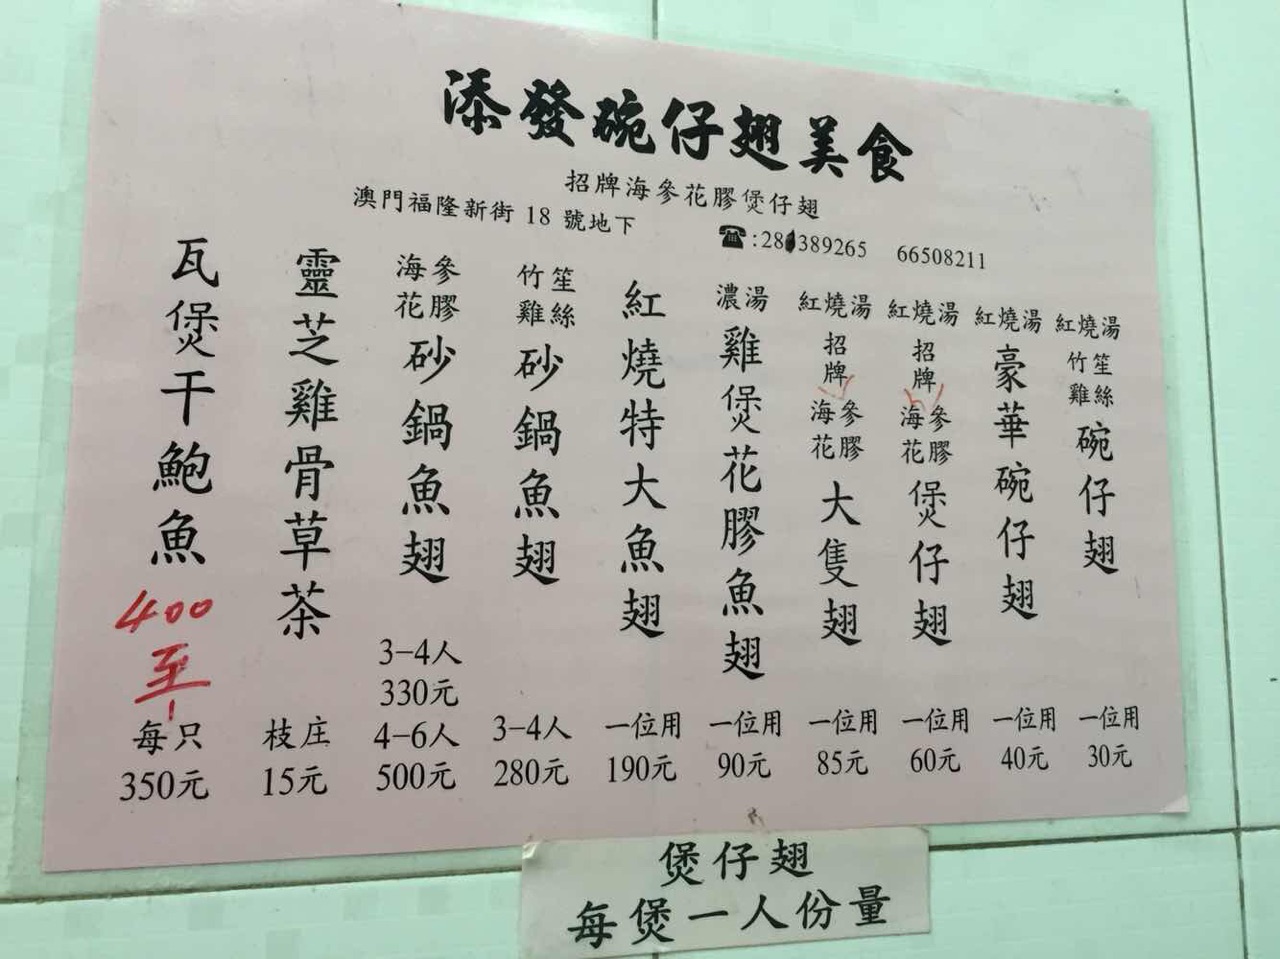 添發碗仔翅美食
招牌海參花膠煲仔翅
澳門福隆新街 18 號地下
☎:28 389265 66508211
紅燒湯 竹笙雞絲 碗仔翅 一位用 30元
紅燒湯 豪華碗仔翅 一位用 40元
紅燒湯 招牌 海參花膠 煲仔翅 一位用 60元
紅燒湯 招牌 海參花膠 大隻翅 一位用 85元
濃湯 雞煲花膠魚翅 一位用 90元
紅燒特大魚翅 一位用 190元
竹笙雞絲 砂鍋魚翅 3-4人 280元
海參花膠 砂鍋魚翅 3-4人 330元 4-6人 500元
靈芝雞骨草茶 枝庄 15元
瓦煲干鮑魚 400 至 每只 350元
煲仔翅
每煲一人份量